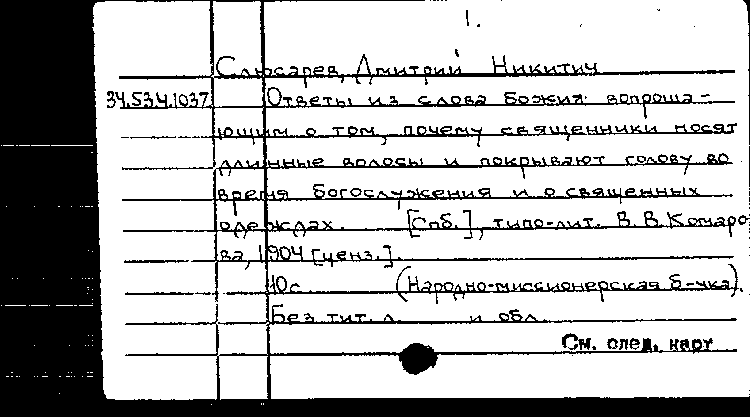 1.
Слюсарев, Дмитрий Никитич
34.534.1037 Ответы из слова Божия вопроша-
ющим о том, почему священники носят
длинные волосы и покрывают голову во
время богослужения и о священных
одеждах. [Спб.], типо-лит. В. В. Комаро
ва, 1904 [ценз.].
10 с. (Народно-миссионерская б-чка).
Без тит. л. и обл.
См. след. карт